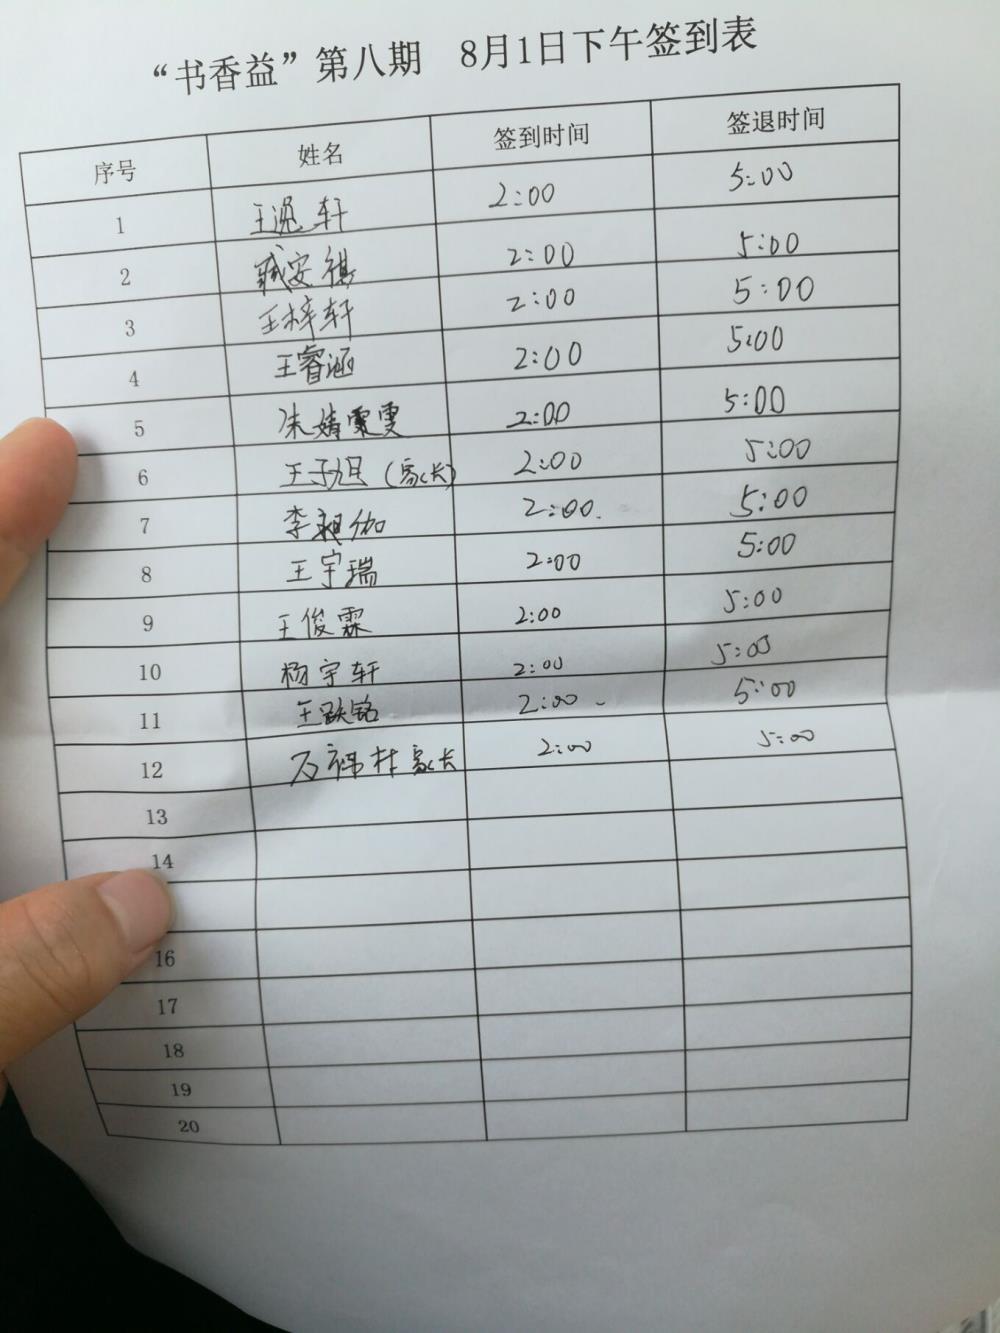 “书香益”第八期 8月1日下午签到表
序号 姓名 签到时间 签退时间
1 王逸轩 2:00 5:00
2 臧安祺 2:00 5:00
3 王梓轩 2:00 5:00
4 王睿涵 2:00 5:00
5 朱婧霂雯 2:00 5:00
6 王子旭(家长) 2:00 5:00
7 李昶伽 2:00. 5:00
8 王宇瑞 2:00 5:00
9 王俊霖 2:00 5:00
10 杨宇轩 2:00 5:00
11 王跃铭 2:00 5:00
12 家长 2:00 5:00
13
14
16
17
18
19
20